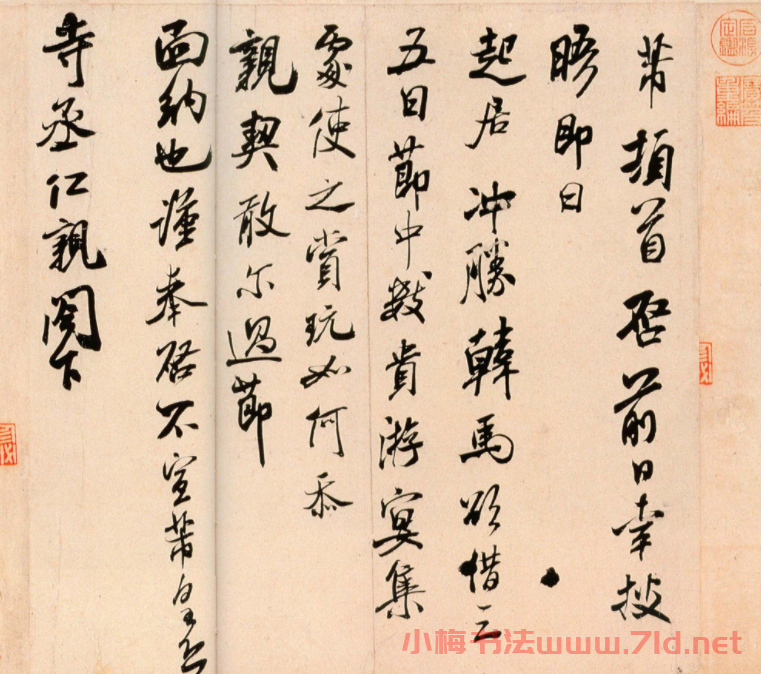 芾頓首啓前日幸披
晤即日
起居沖勝韓馬欲借三
五日節中數貴游宴集
處使之賞玩如何忝
親契敢尒過節
面納也謹奉啓不宣芾皇恐
寺丞仁親閤下
小梅书法www.7ld.net